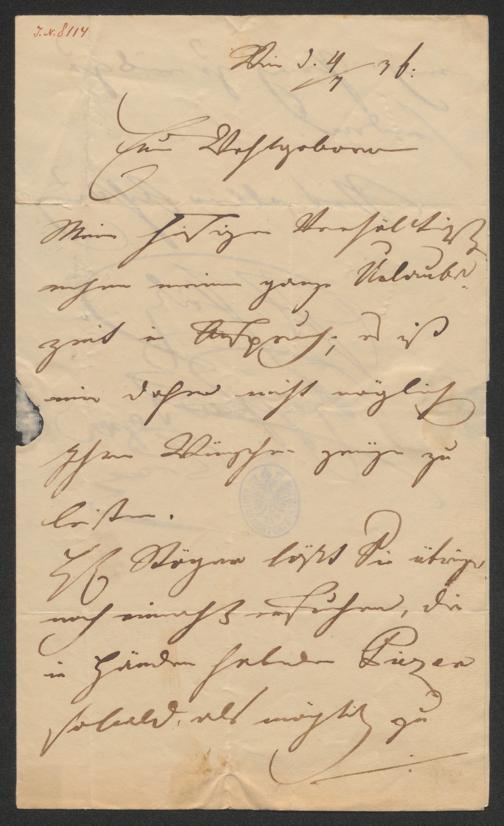 J.N. 8114
Wien d. 4/7 36.
Euer Wohlgeboren
Meine hiesigen Verhältniße
nehmen meine ganze Urlaubs-
zeit in Anspruch; es ist
mir daher nicht möglich
Ihren Wünschen zu
leisten.
Stöger läßt Sie übrigens
noch einmahl ersuchen, die
in Händen habenden Piezen
sobald als möglich zu